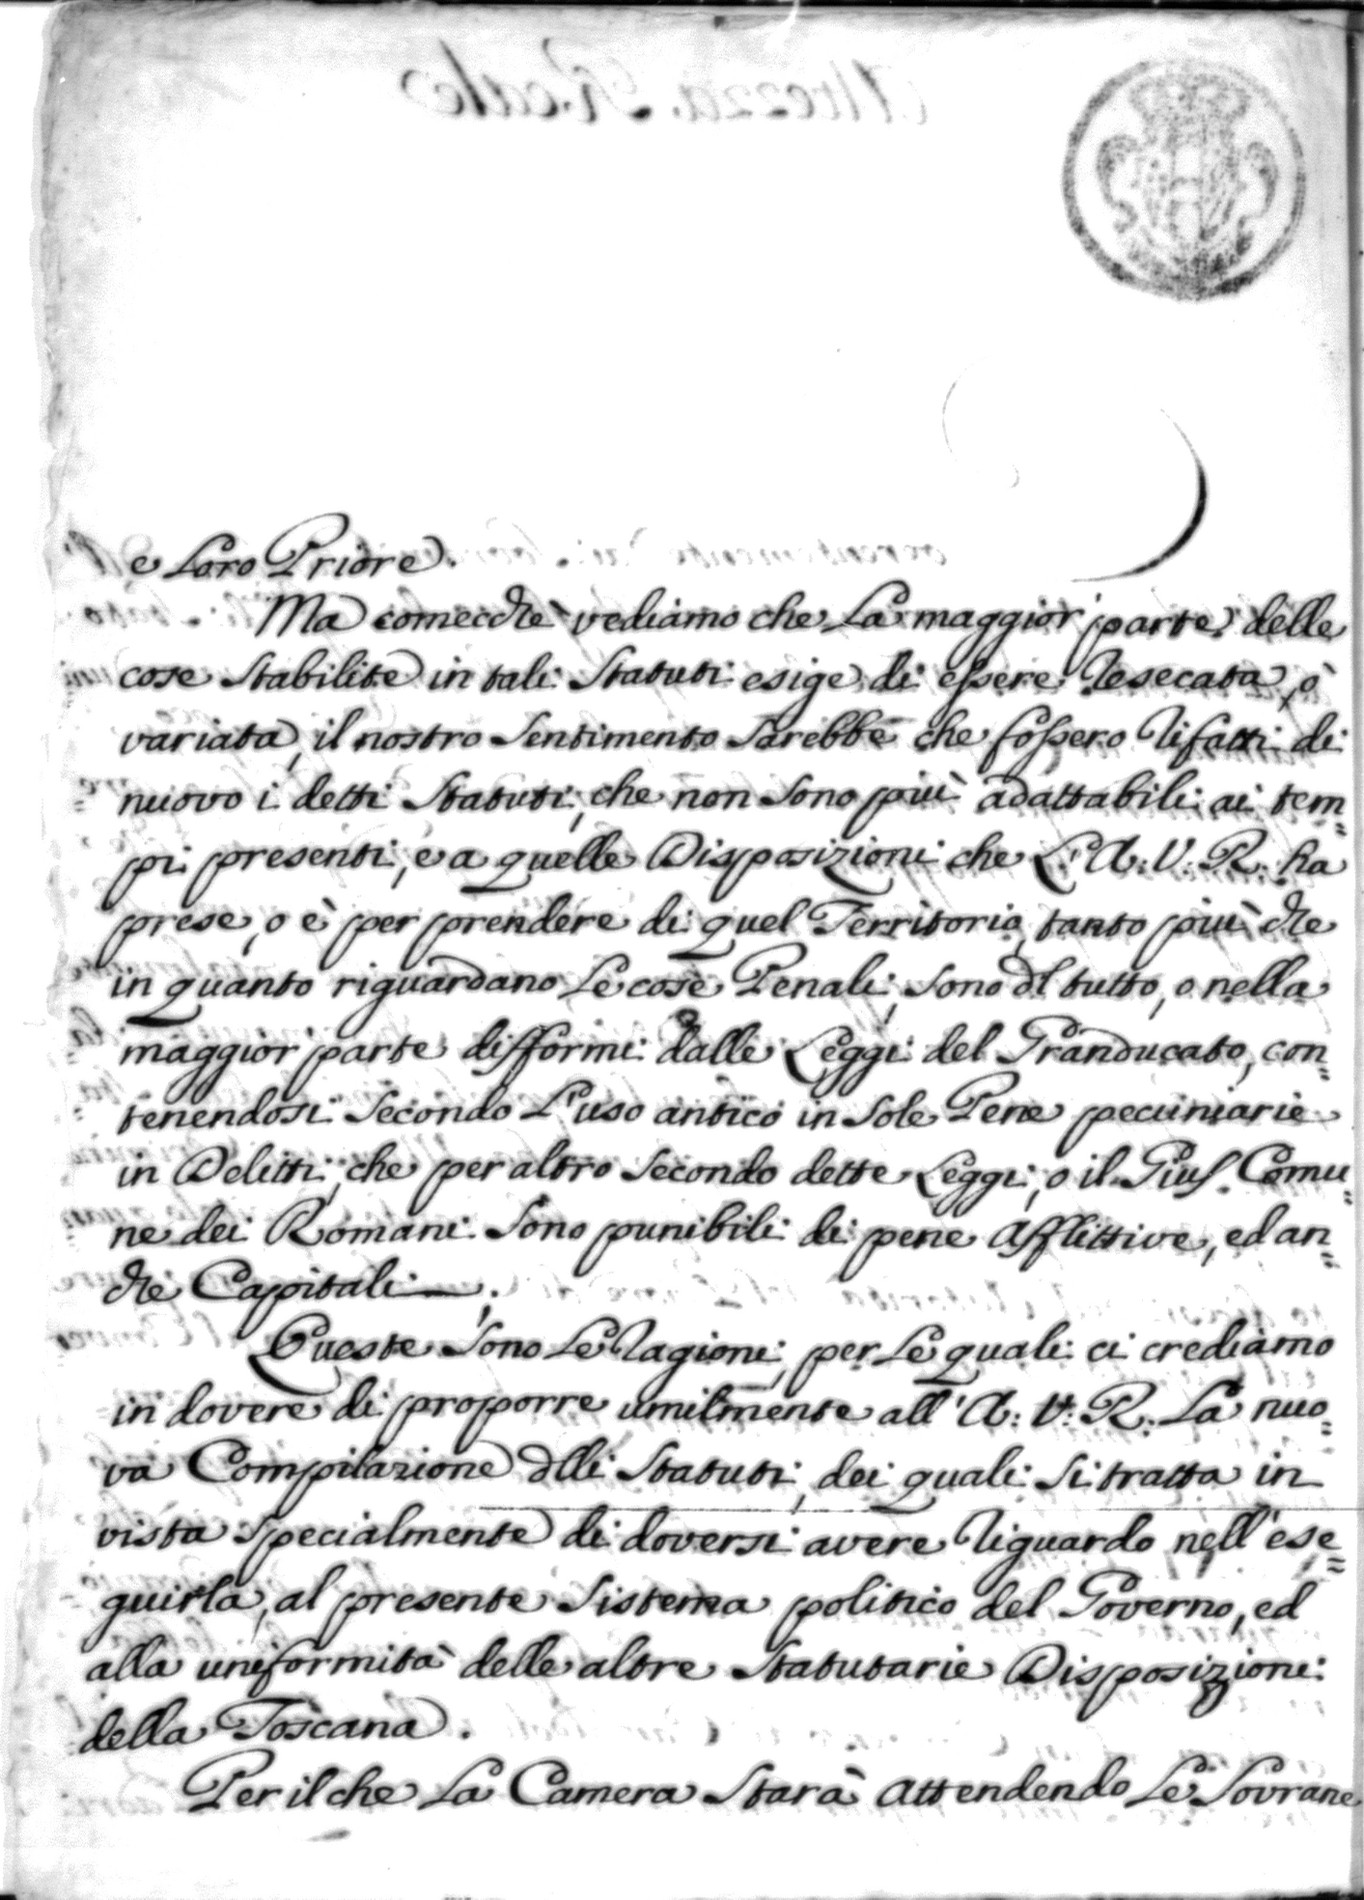 e Loro Priore.
Ma comecchè vediamo che La maggior parte delle
cose Stabilite in tali Statuti esige di essere Resecata, ò
variata, il nostro Sentimento Sarebbe che fossero Rifatti di
nuovo i detti Statuti, che non Sono più adattabili ai tem=
pi presenti, e a quelle Disposizioni che L'A: V: R: ha
prese, o è per prendere di quel Territorio, tanto più che
in quanto riguardano Le cose Penali, Sono dl tutto, o nella
maggior parte difformi dalle Leggi del Granducato, con=
tenendosi Secondo L'uso antico in Sole Pene pecuniarie
in Delitti, che per altro Secondo dette Leggi, o il Gius. Comu=
ne dei Romani Sono punibili di pene Afflittive, ed an=
che Capitali.
Queste Sono Le Ragioni, per Le quali ci crediamo
in dovere di proporre umilmente all'A: V: R: La nuo=
va Compilazione dlli Statuti, dei quali Si tratta in
vista Specialmente di doversi avere Riguardo nell'ese=
guirla, al presente Sistema politico del Governo, ed
alla uniformità delle altre Statutarie Disposizioni
della Toscana.
Per il che La Camera Starà Attendendo Le Sovrane